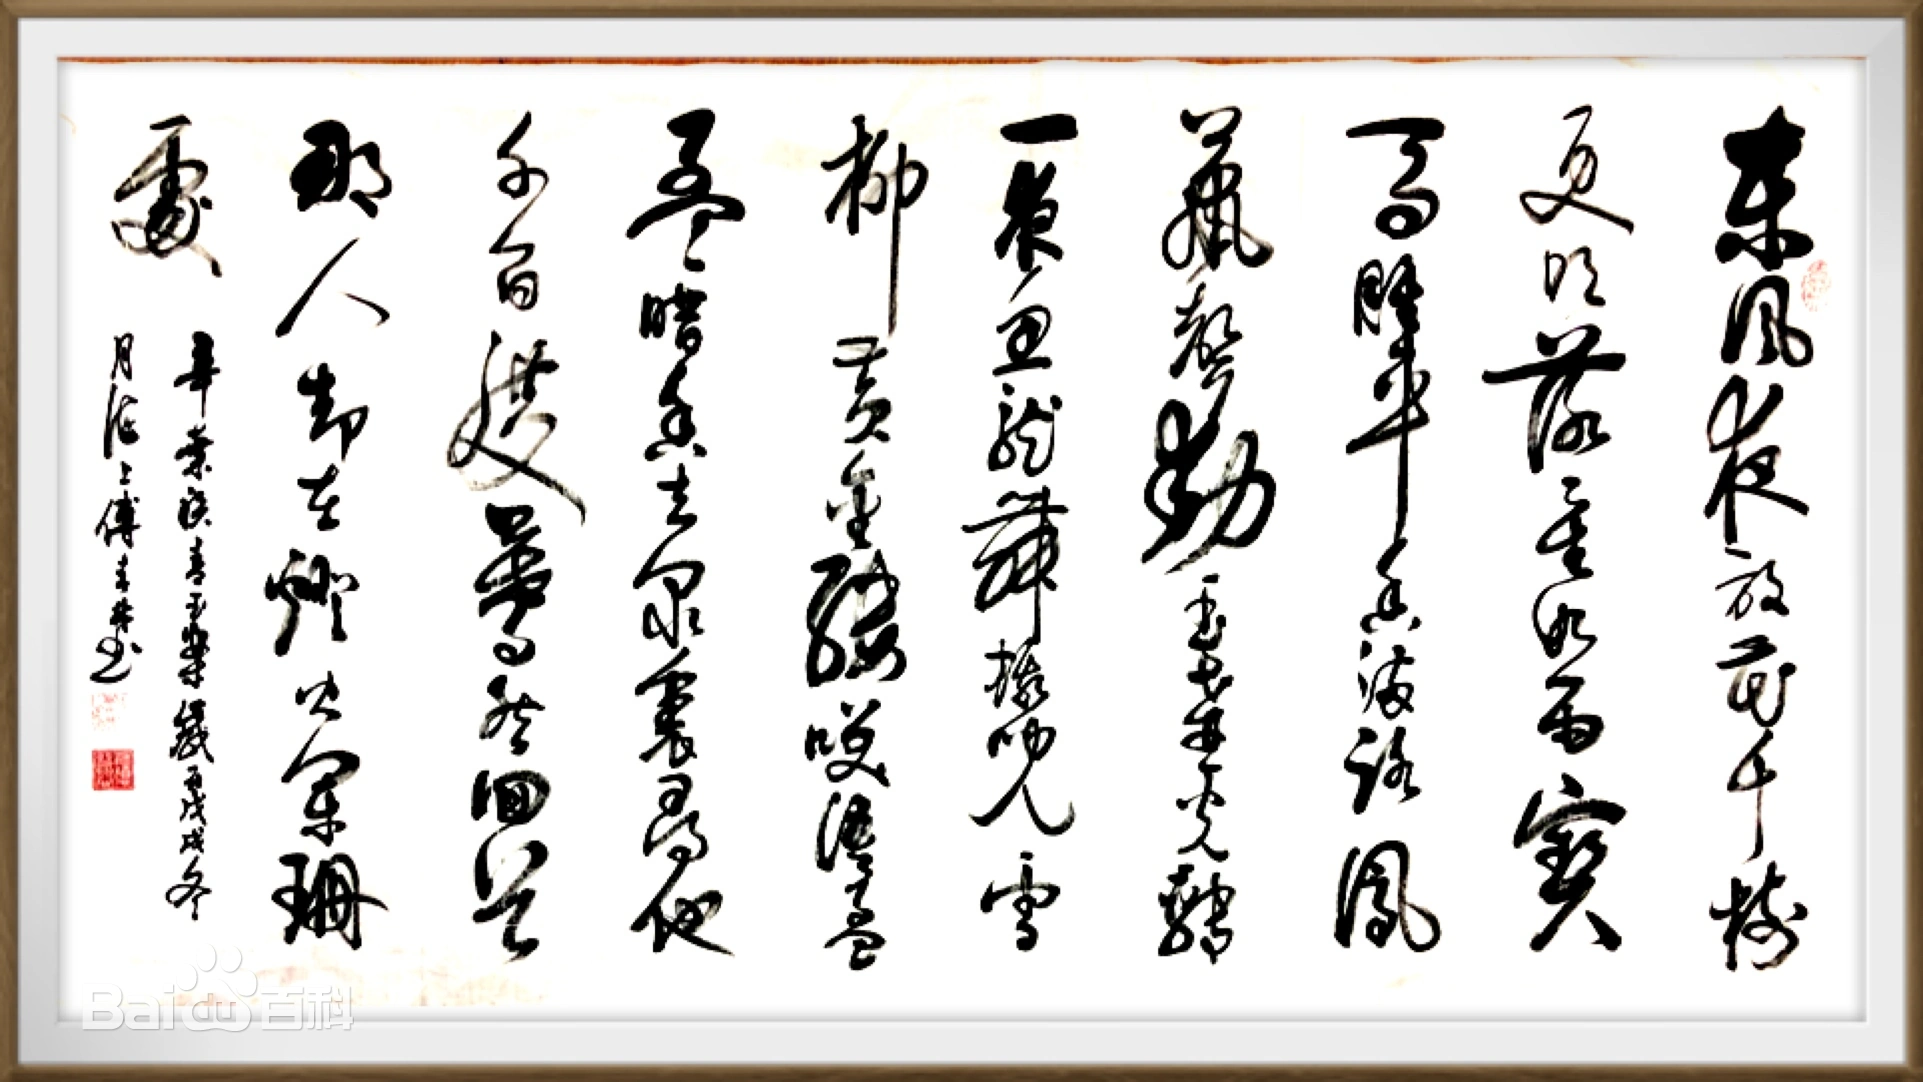 東風夜放花千樹
更吹落星如雨寶
馬雕車香滿路鳳
簫聲動玉壺光轉
一夜魚龍舞蛾兒雪
柳黃金縷笑語盈
盈暗香去衆裏尋他
千百度驀然回首
那人却在燈火闌珊
處
辛棄疾青玉案 歲在戊戌冬
月 上傅 書
Baidu百科